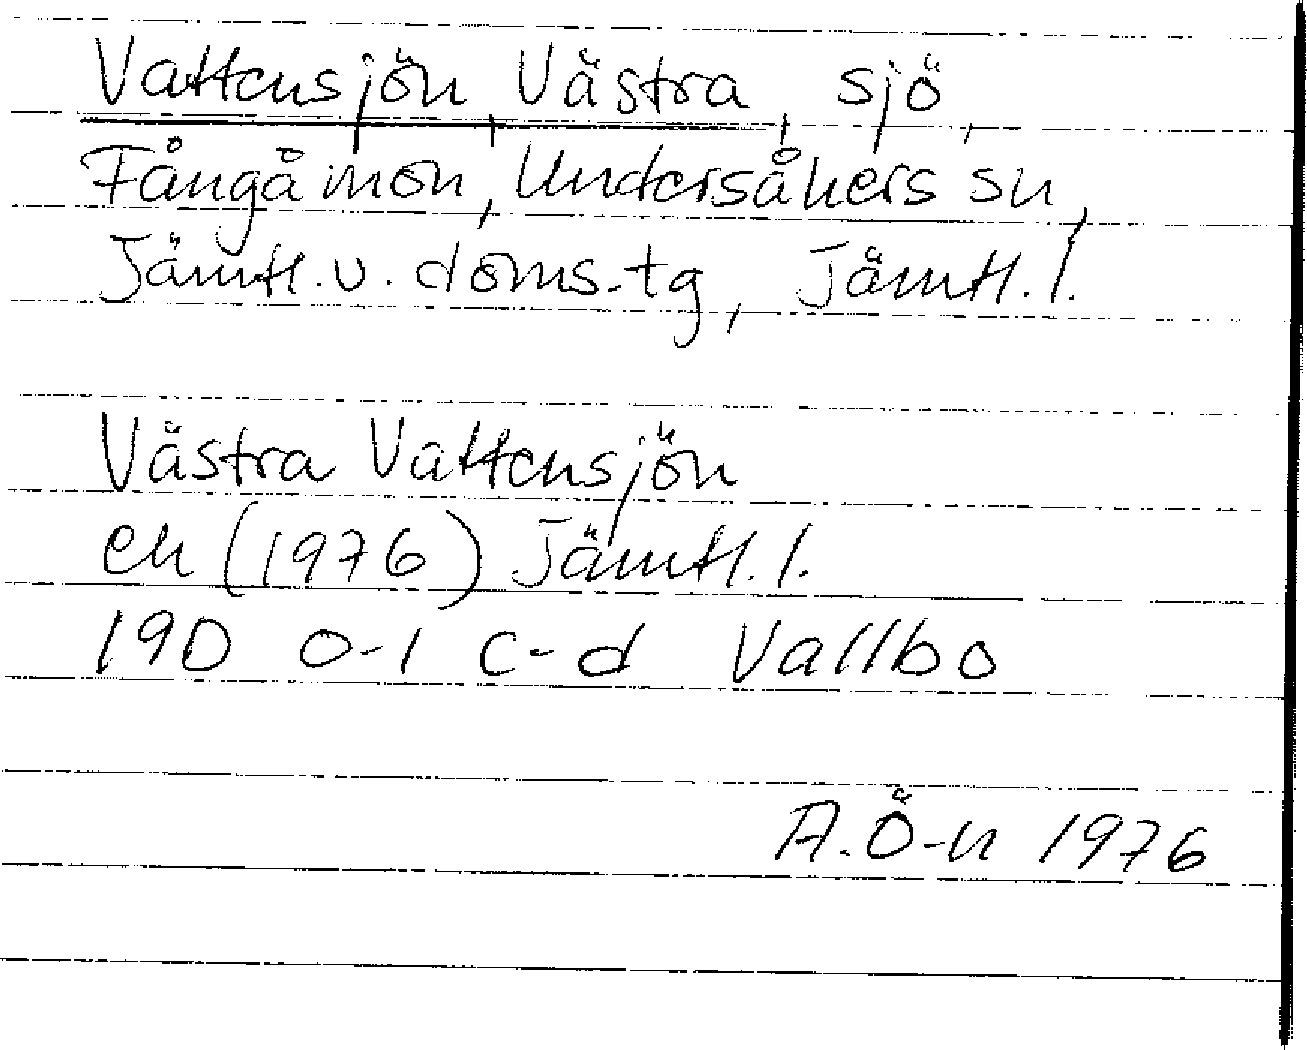 Vattensjön, Västra, sjö,
Fångåmon, Undersåkers sn,
Jämtl. v. doms.tg, Jämtl. l.
Västra Vattensjön
ek (1976) Jämtl. l.
19D 0-1 c-d Vallbo
A.Ö-n 1976